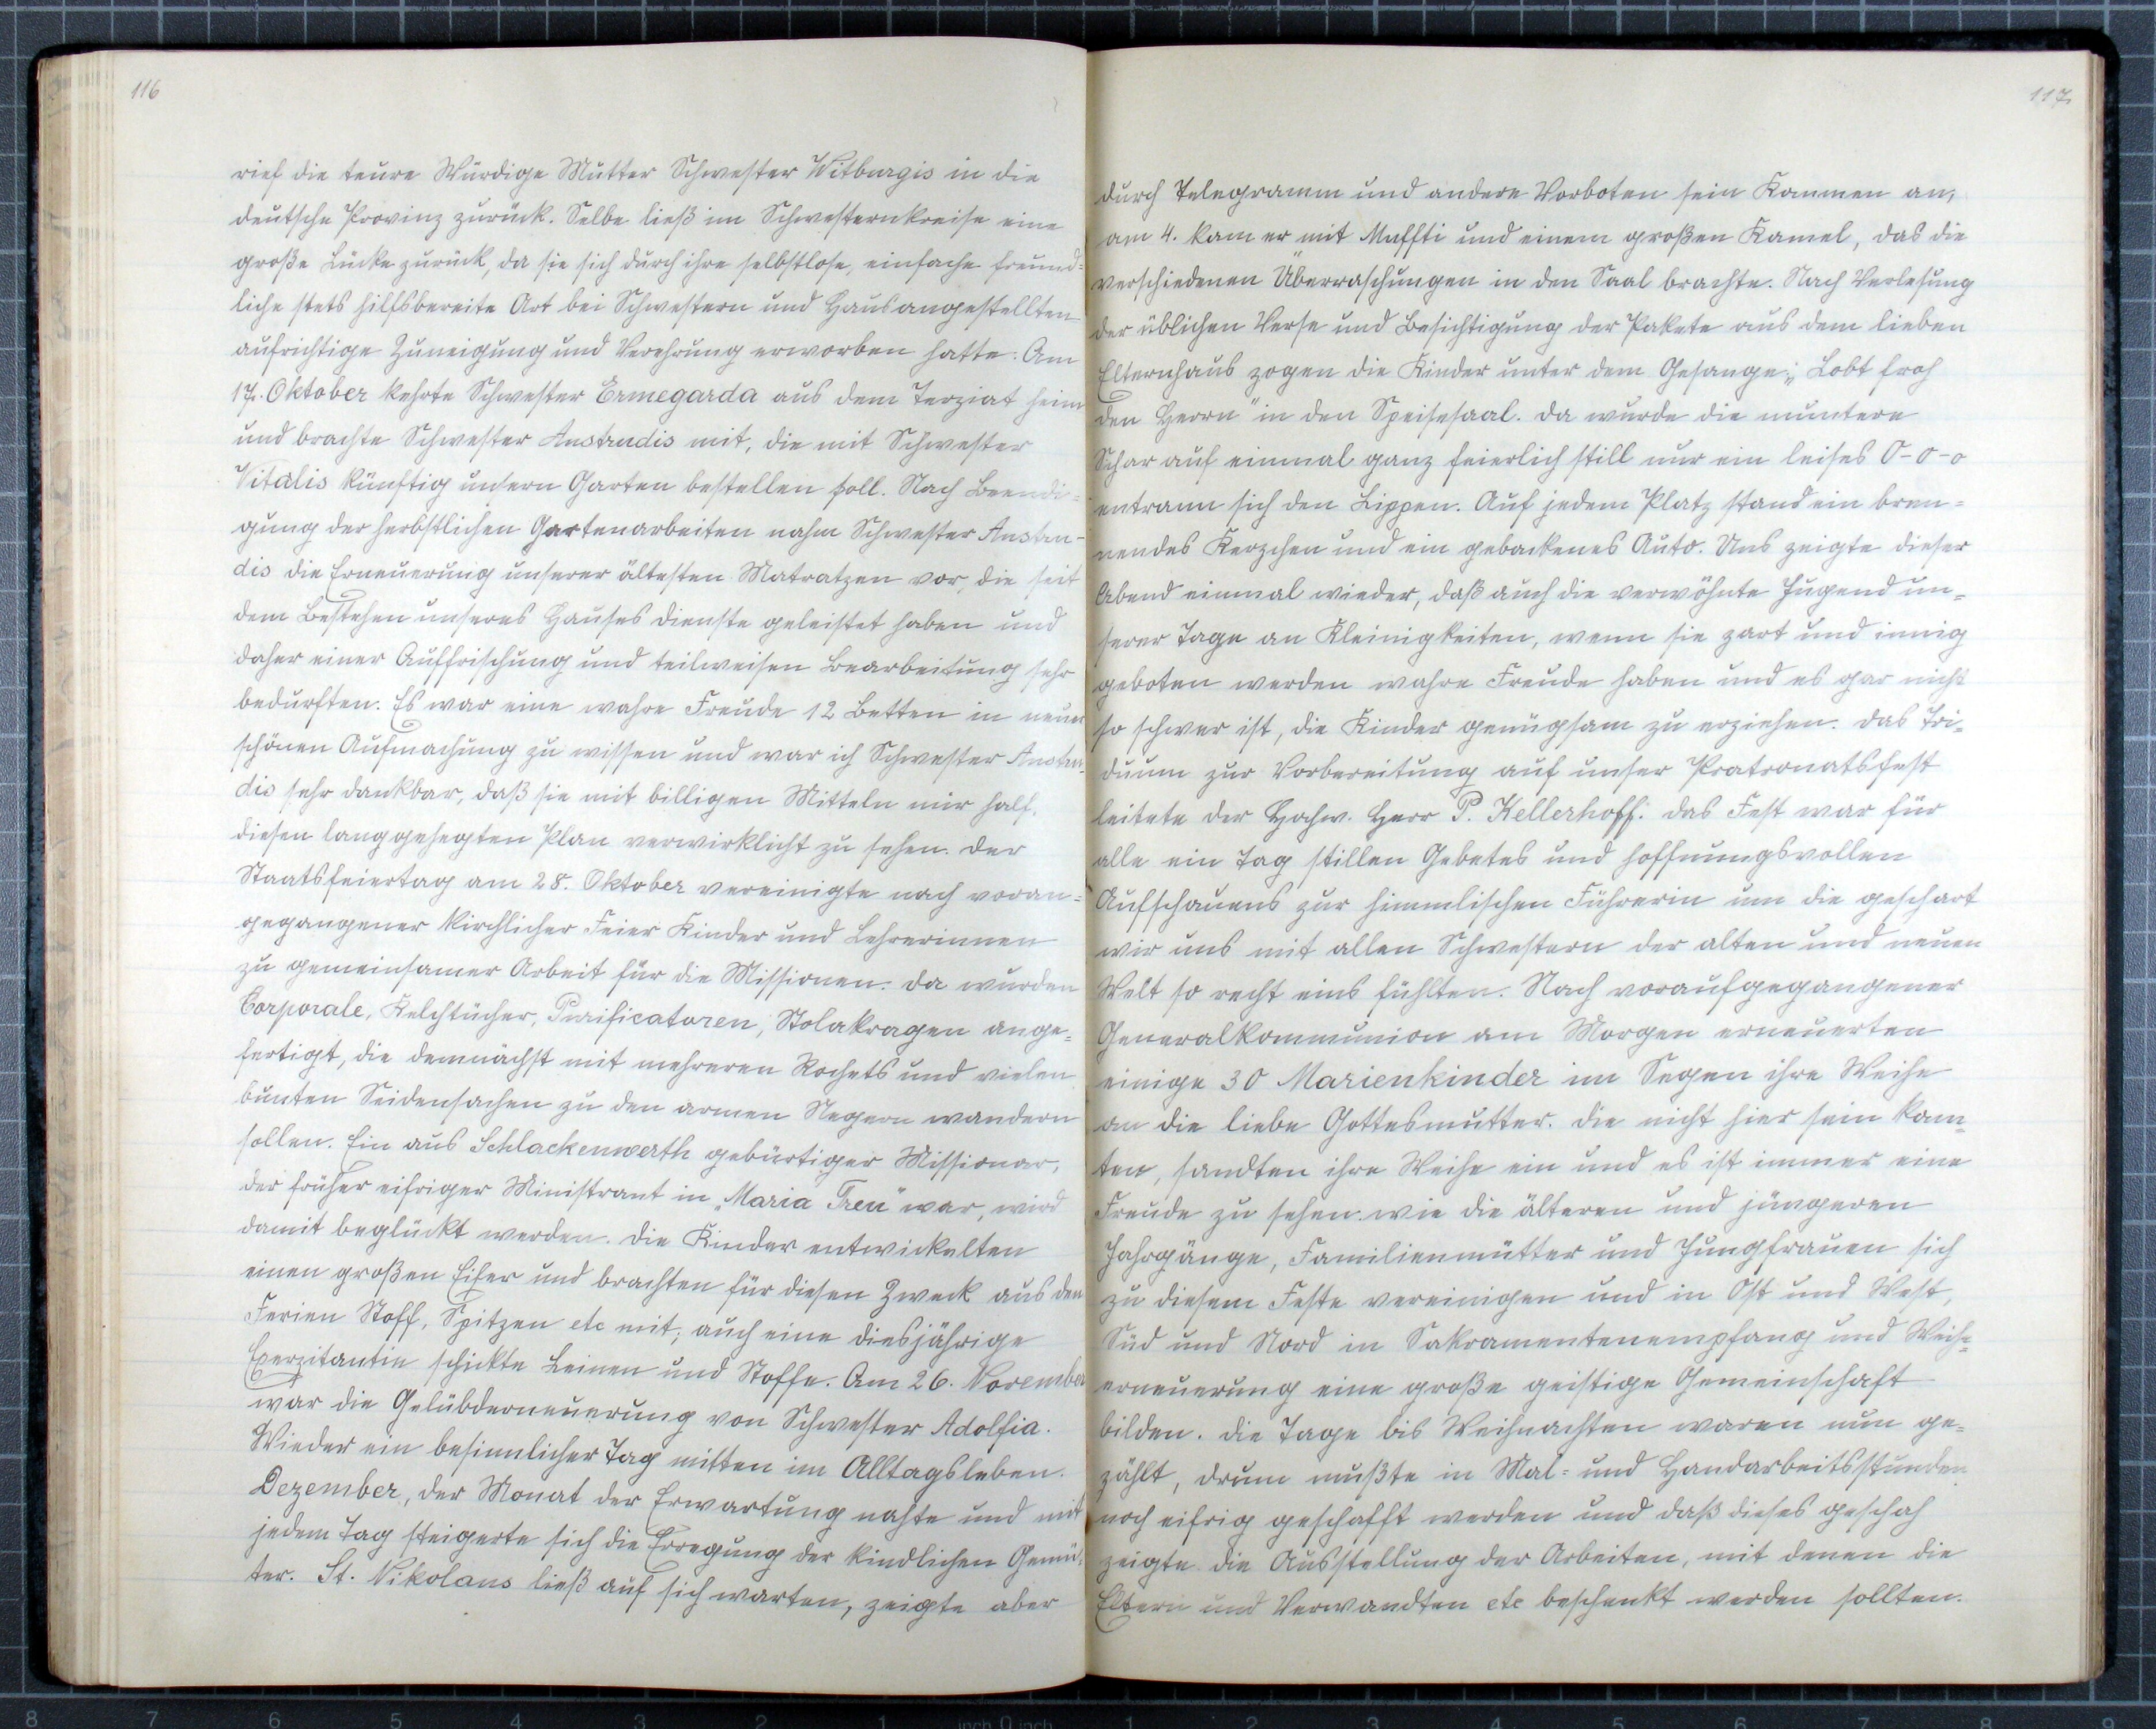 116
rief die teure Würdige Mutter Schwester Witburgis in die
deutsche Provinz zurück. Selbe ließ im Schwesternkreise eine
große Lücke zurück, da sie sich durch ihre selbstlose, einfache freund=
liche stets hilfsbereite Art bei Schwestern und Hausangestellten
aufrichtige Zuneigung und Verehrung erworben hatte. Am
17. Oktober kehrte Schwester Ermegarda aus dem Terziat heim
und brachte Schwester Anstrudis mit, die mit Schwester
Vitalis künftig unsern Garten bestellen soll. Nach Beendi=
gung der herbstlichen Gartenarbeiten nahm Schwester Anstru-
dis die Erneuerung unserer ältesten Matratzen vor, die seit
dem Bestehen unseres Hauses Dienste geleistet haben und
daher einer Auffrischung und teilweisen Bearbeitung sehr
bedurften. Es war eine wahre Freude 12 Betten in neuer
schönen Aufmachung zu wissen und war ich Schwester Anstru-
dis sehr dankbar, daß sie mit billigen Mitteln mir half,
diesen langgehegten Plan verwirklicht zu sehen. Der
Staatsfeiertag am 28. Oktober vereinigte nach voran=
gegangener kirchlicher Feier Kinder und Lehrerinnen
zu gemeinsamer Arbeit für die Missionen. Da wurden
Corporale, Kelchtücher, Purificatoren, Stolakragen ange=
fertigt, die demnächst mit mehreren Rochets und vielen
bunten Seidensachen zu den armen Negern wandern
sollen. Ein aus Schlackenwerth gebürtiger Missionar,
der früher eifriger Ministrant in „Maria Treu" war, wird
damit beglückt werden. Die Kinder entwickelten
einen großen Eifer und brachten für diesen Zweck aus den
Ferien Stoff, Spitzen etc mit; auch eine diesjährige
Exerzitantin schickte Leinen und Stoffe. Am 26. November
war die Gelübderneuerung von Schwester Adolfia.
Wieder ein besinnlicher Tag mitten im Alltagsleben.
Dezember, der Monat der Erwartung nahte und mit
jedem Tag steigerte sich die Erregung der kindlichen Gemü=
ter. St. Nikolaus ließ auf sich warten, zeigte aber
117.
durch Telegramm und andere Vorboten sein Kommen an,
am 4. kam er mit Muffti und einem großen Kamel, das die
verschiedenen Überraschungen in den Saal brachte. Nach Verlesung
der üblichen Verse und Besichtigung der Pakete aus dem lieben
Elternhaus zogen die Kinder unter dem Gesange: „Lobt froh
den Herrn" in den Speisesaal. Da wurde die muntere
Schar auf einmal ganz feierlich still nur ein leises O-o-o
entrann sich den Lippen. Auf jedem Platz stand ein bren=
nendes Kerzchen und ein gebackenes Auto. Uns zeigte dieser
Abend einmal wieder, daß auch die verwöhnte Jugend un=
serer Tage an Kleinigkeiten, wenn sie zart und innig
geboten werden wahre Freude haben und es gar nicht
so schwer ist, die Kinder genügsam zu erziehen. Das Tri=
duum zur Vorbereitung auf unser Pratronatsfest
leitete der Hochw. Herr P. Kellerhoff. Das Fest war für
alle ein Tag stillen Gebetes und hoffnungsvollen
Aufschauens zur himmlischen Führerin um die geschart
wir uns mit allen Schwestern der alten und neuen
Welt so recht eins fühlten. Nach voraufgegangener
Generalkommunion am Morgen erneuerten
einige 30 Marienkinder im Segen ihre Weihe
an die liebe Gottesmutter. Die nicht hier sein konn=
ten, sandten ihre Weihe ein und es ist immer eine
Freude zu sehen wie die älteren und jüngeren
Jahrgänge, Familienmütter und Jungfrauen sich
zu diesem Feste vereinigen und in Ost und West,
Süd und Nord in Sakramentenempfang und Weih=
erneuerung eine große geistige Gemeinschaft
bilden. Die Tage bis Weihnachten waren nun ge=
zählt, drum mußte in Mal= und Handarbeitsstunden
noch eifrig geschafft werden und daß dieses geschah
zeigte die Ausstellung der Arbeiten, mit denen die
Eltern und Verwandten etc beschenkt werden sollten.
8 7 6 5 4 3 2 1 inch 0 inch 1 2 3 4 5 6 7 8 9